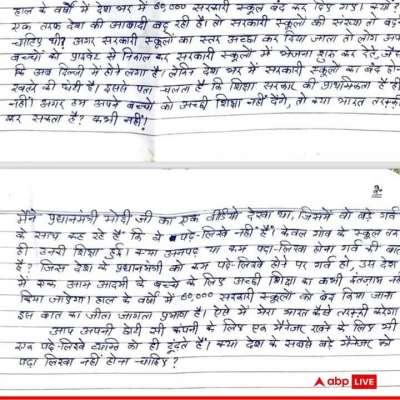 हाल के वर्षों में देश भर में 60,000 सरकारी स्कूल बंद कर दिए गए। क्यों?
एक तरफ देश की आबादी बढ़ रही है। तो सरकारी स्कूलों की संख्या तो बढ़नी
चाहिए थी? अगर सरकारी स्कूलों का स्तर अच्छा कर दिया जाता तो लोग अपने
बच्चों को प्राइवेट से निकाल कर सरकारी स्कूलों में भेजना शुरू कर देते, जैसा
कि अब दिल्ली में होने लगा है। लेकिन देश भर में सरकारी स्कूलों का बंद होना
खतरे की घंटी है। इससे पता चलता है कि शिक्षा सरकार की प्राथमिकता है ही
नहीं। अगर हम अपने बच्चों को अच्छी शिक्षा नहीं देंगे, तो क्या भारत तरक्की
कर सकता है? कभी नहीं।
2
मैंने प्रधानमंत्री मोदी जी का एक वीडियो देखा था, जिसमें वो बड़े गर्व
के साथ कह रहे हैं कि वे पढ़े-लिखे नहीं हैं। केवल गाँव के स्कूल तक
ही उनकी शिक्षा हुई। क्या अनपढ़ या कम पढ़ा-लिखा होना गर्व की बात
है? जिस देश के प्रधानमंत्री को कम पढ़े-लिखे होने पर गर्व हो, उस देश
में एक आम आदमी के बच्चे के लिए अच्छी शिक्षा का कभी इंतज़ाम नहीं
किया जाएगा। हाल के वर्षों में 60,000 सरकारी स्कूलों को बंद किया जाना
इस बात का जीता जागता प्रमाण है। ऐसे में मेरा भारत कैसे तरक्की करेगा?
आप अपनी छोटी सी कंपनी के लिए एक मैनेजर रखने के लिए भी
एक पढ़े-लिखे व्यक्ति को ही ढूंढते हैं। क्या देश के सबसे बड़े मैनेजर को
पढ़ा लिखा नहीं होना चाहिए?
abp LIVE